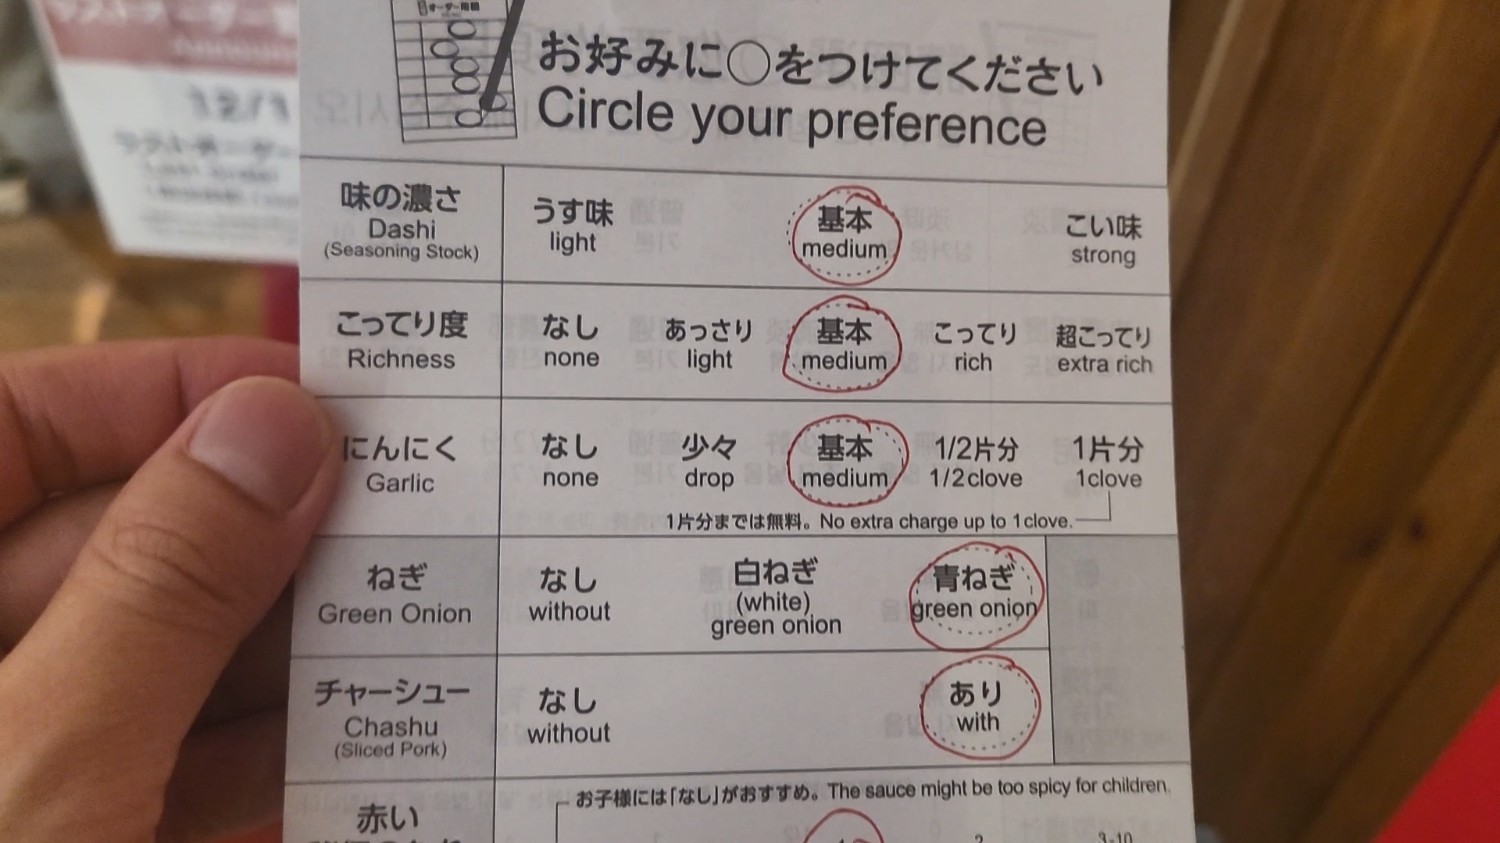 オーダー用紙
お好みに○をつけてください
Circle your preference
味の濃さ
Dashi
(Seasoning Stock)
うす味
light
基本
medium
こい味
strong
こってり度
Richness
なし
none
あっさり
light
基本
medium
こってり
rich
超こってり
extra rich
にんにく
Garlic
なし
none
少々
drop
基本
medium
1/2片分
1/2clove
1片分
1clove
1片分までは無料。No extra charge up to 1clove.
ねぎ
Green Onion
なし
without
白ねぎ
(white)
green onion
青ねぎ
green onion
チャーシュー
Chashu
(Sliced Pork)
なし
without
あり
with
お子様には「なし」がおすすめ。The sauce might be too spicy for children.
赤い
2
3-10
12/1
ラストオーダー